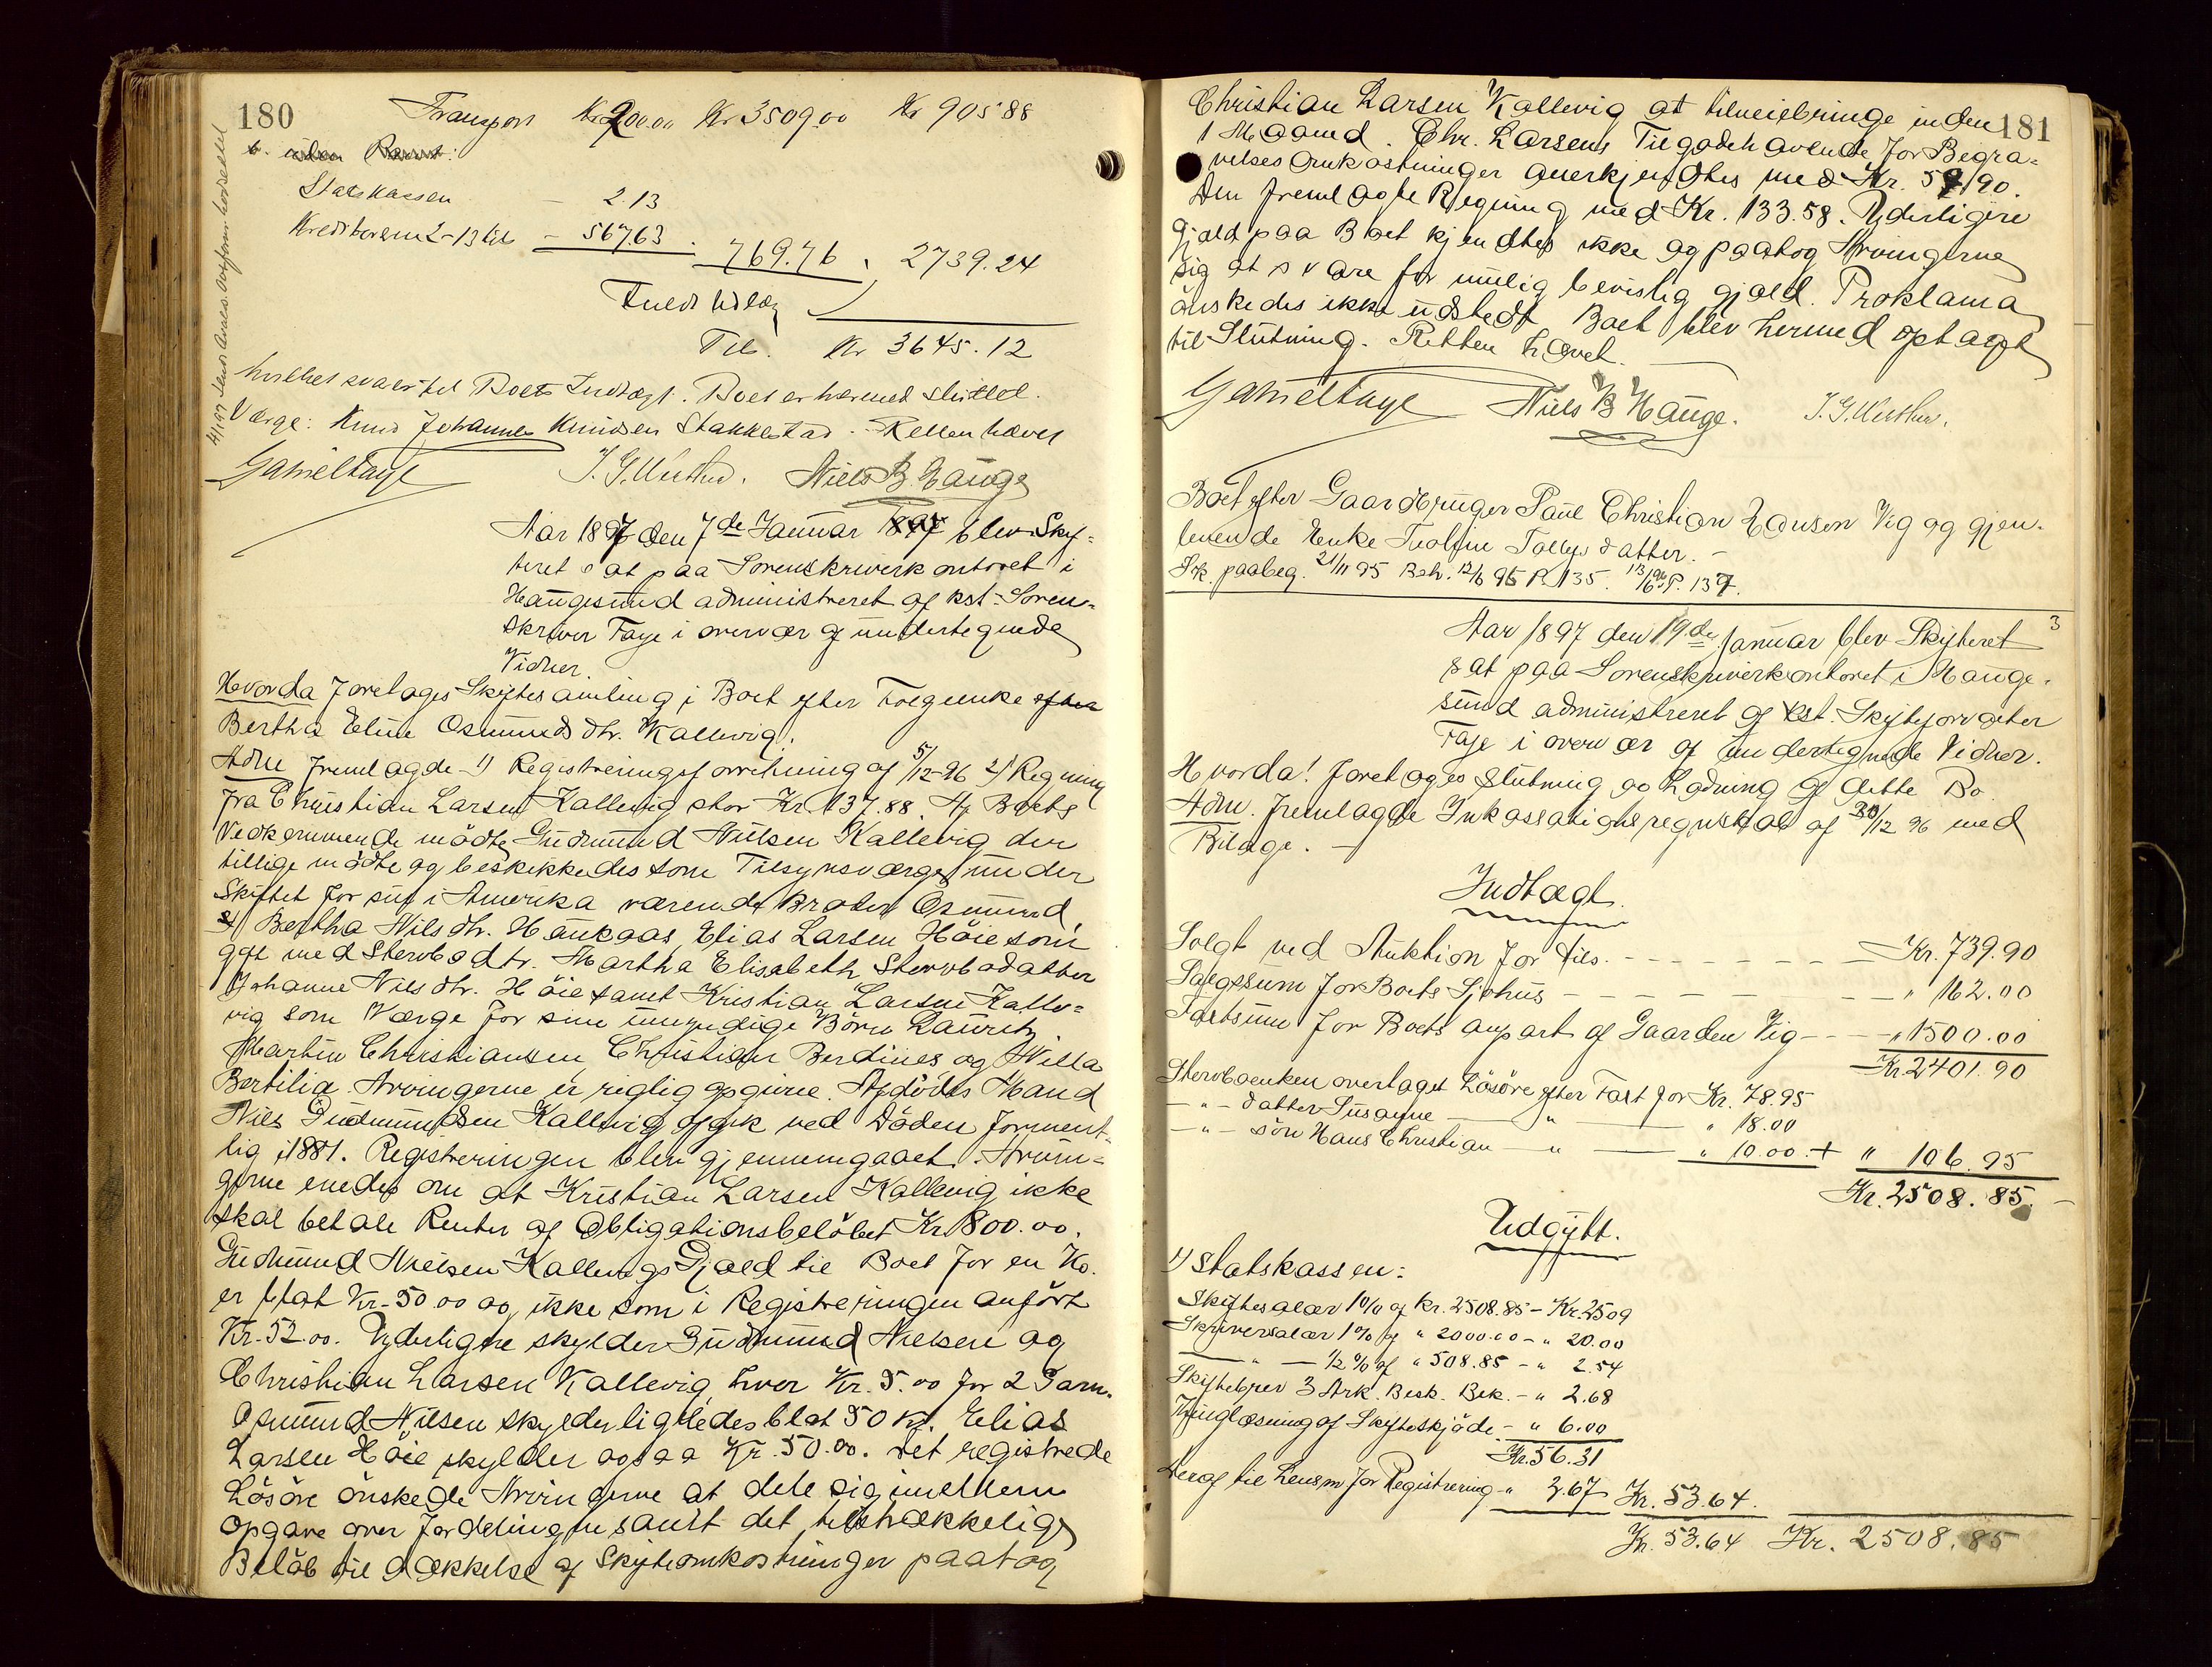 180
Transport Kr 200.00 Kr 3509.00 Kr 905 88
b. uden
Statskassen - 2.13
Kreditorerne 2-13 - 567.63 . 769.76 , 2739.24
Fuldt Udlæg
Til. Kr 3645.12
hvilket svarer til Boets Indtægt. Boet er hermed sluttet.
Værge: Knud Johannes Knudsen Stakkestad. Retten hævet
Gamelt Faye J. G. Niels B. Hauge
Aar 1897 den 7de Januar blev Skif-
teret sat paa Sorenskriverkontoret i
Haugesund administreret af kst. Soren-
skriver Faye i overvær af undertegnede
Vidner.
Hvorda foretages Skiftesamling i Boet efter Føgeenke efter
Bertha Eline Osmundsdtr. Kallevig.
Adm fremlagde 1) Registreringsforretning af 5/12-96 2) Regning
fra Christian Larsen Kallevig stor Kr. 137.88. Af Boets
Vedkommende mødte Gudmund Nilsen Kallevig der
tillige mødte og beskikkedes som Tilsynsværge under
Skiftet for sin i Amerika værende Broder Osmund,
Bertha Nilsdtr. Haukaas, Elias Larsen Höie som
gift med Stervbodtr. Martha Elisabeth Stervbodatter
Johanne Nilsdtr. Höie samt Kristian Larsen Kalle-
vig som Værge for sine umyndige Börn Lauritz
Martin Christiansen, Christian Berdines og Willa
Bertilia. Arvingerne er rigtig opgivne. Afdödes Mand
Nils Gudmundsen Kallevig afgik ved Döden forment-
lig i 1881. Registreringen blev gjennemgaaet. Arvin-
gerne enedes om at Kristian Larsen Kallevig ikke
skal betale Renter af Obligationsbelöbet Kr. 800.00.
Gudmund Nielsen Kallevigs Gjæld til Boet for en Ko.
er blot Kr. 50.00 og ikke som i Registreringen anfört
Kr. 52.00. Yderligere skylder Gudmund Nielsen og
Christian Larsen Kallevig hver Kr. 5.00 for 2 Garn.
Osmund Nilsen skylder ligeledes blot 50 Kr. Elias
Larsen Höie skylder ogsaa Kr. 50.00. Det registrerede
Lösöre önskede Arvingerne at dele sig imellem
Opgave over Fordelingen samt det tilstrækkelige
Belöb til Dækkelse af Skifteomkostninger paatog
181
Christian Larsen Kallevig at tilveiebringe inden
1 Maaned. Chr. Larsens Tilgodehavende for Begra-
velsesomkostninger anerkjendtes med Kr. 57.90.
Den fremlagte Regning med Kr. 133.58. Yderligere
Gjæld paa Boet kjendtes ikke og paatog Arvingerne
sig at svare for mulig bevislig gjæld. Proklama
önskedes ikke udstedt. Boet blev hermed optaget
til Slutning. Retten hævet.
Gamelt Faye Niels B Hauge. J. G.
Boet efter Gaardbruger Paul Christian Hansen Vig og gjen-
levende Enke Tollevsdatter. -
Srk. paabeg. 21/11 95 Beh. 12/6 96 P. 135. 13/6 96 P. 137.
3
Aar 1897 den 19de Januar blev Skifteret
sat paa Sorenskriverkontoret i Hauge-
sund administreret af kst. Skifteforvalter
Faye i overvær af undertegnede Vidner.
Hvorda! foretoges Slutning og Lodning af dette Bo
Adm. fremlagde Inkassationsregnskab af 30/12 96 med
Bilage. -
Indtægt.
Solgt ved Auktion for tils. - - - Kr. 739.90
Salgssum for Boets Sjöhus - - - " 162.00
Taxtsum for Boets anpart af Gaarden Vig - - " 1500.00
Kr. 2401.90
Stervboenken overtaget Lösöre efter Taxt for Kr. 78.95
- " - datter Susanne - " - " 18.00
- " - sön Hans Christian - " - " 10.00 + " 106.95
Kr. 2508.85. -
Udgift.
1) Statskassen:
Skiftesalær 1% af Kr. 2508.85 - Kr. 25 09
Skriversalær 1% af " 2000.00 - " 20.00
- " - 1/2 % af " 508.85 - " 2.54
Skiftebrev 3 Ark. Besk. Bek. - " 2.68
Tinglæsning af Skifteskjöde - " 6.00
Kr. 56.31
Deraf til Lensm for Registrering " 2.67 Kr. 53.64.
Kr. 53.64 Kr. 2508.85